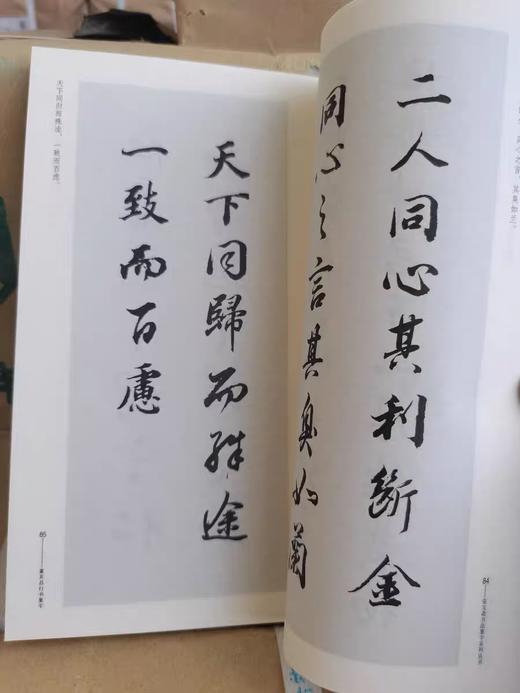 二人同心其利斷金
同心之言其臭如蘭
84
天下同歸而殊途
一致而百慮
天下同归而殊途，一致而百虑。
85——董其昌行书集字